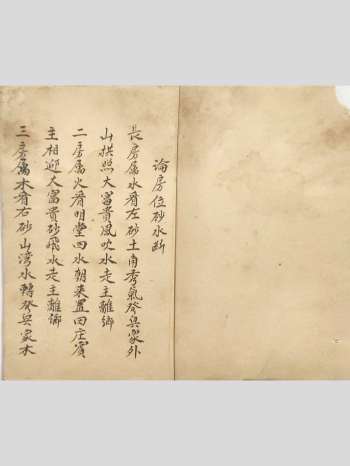 論房位砂水断
長房屬水看左砂土角秀氣發與家外
山拱照大富貴風吹水走主離鄉
二房屬火看明堂四水朝來置田庄賓
主相迎大富貴砂飛水走主離鄉
三房屬木看右砂山湾水轉發與家木